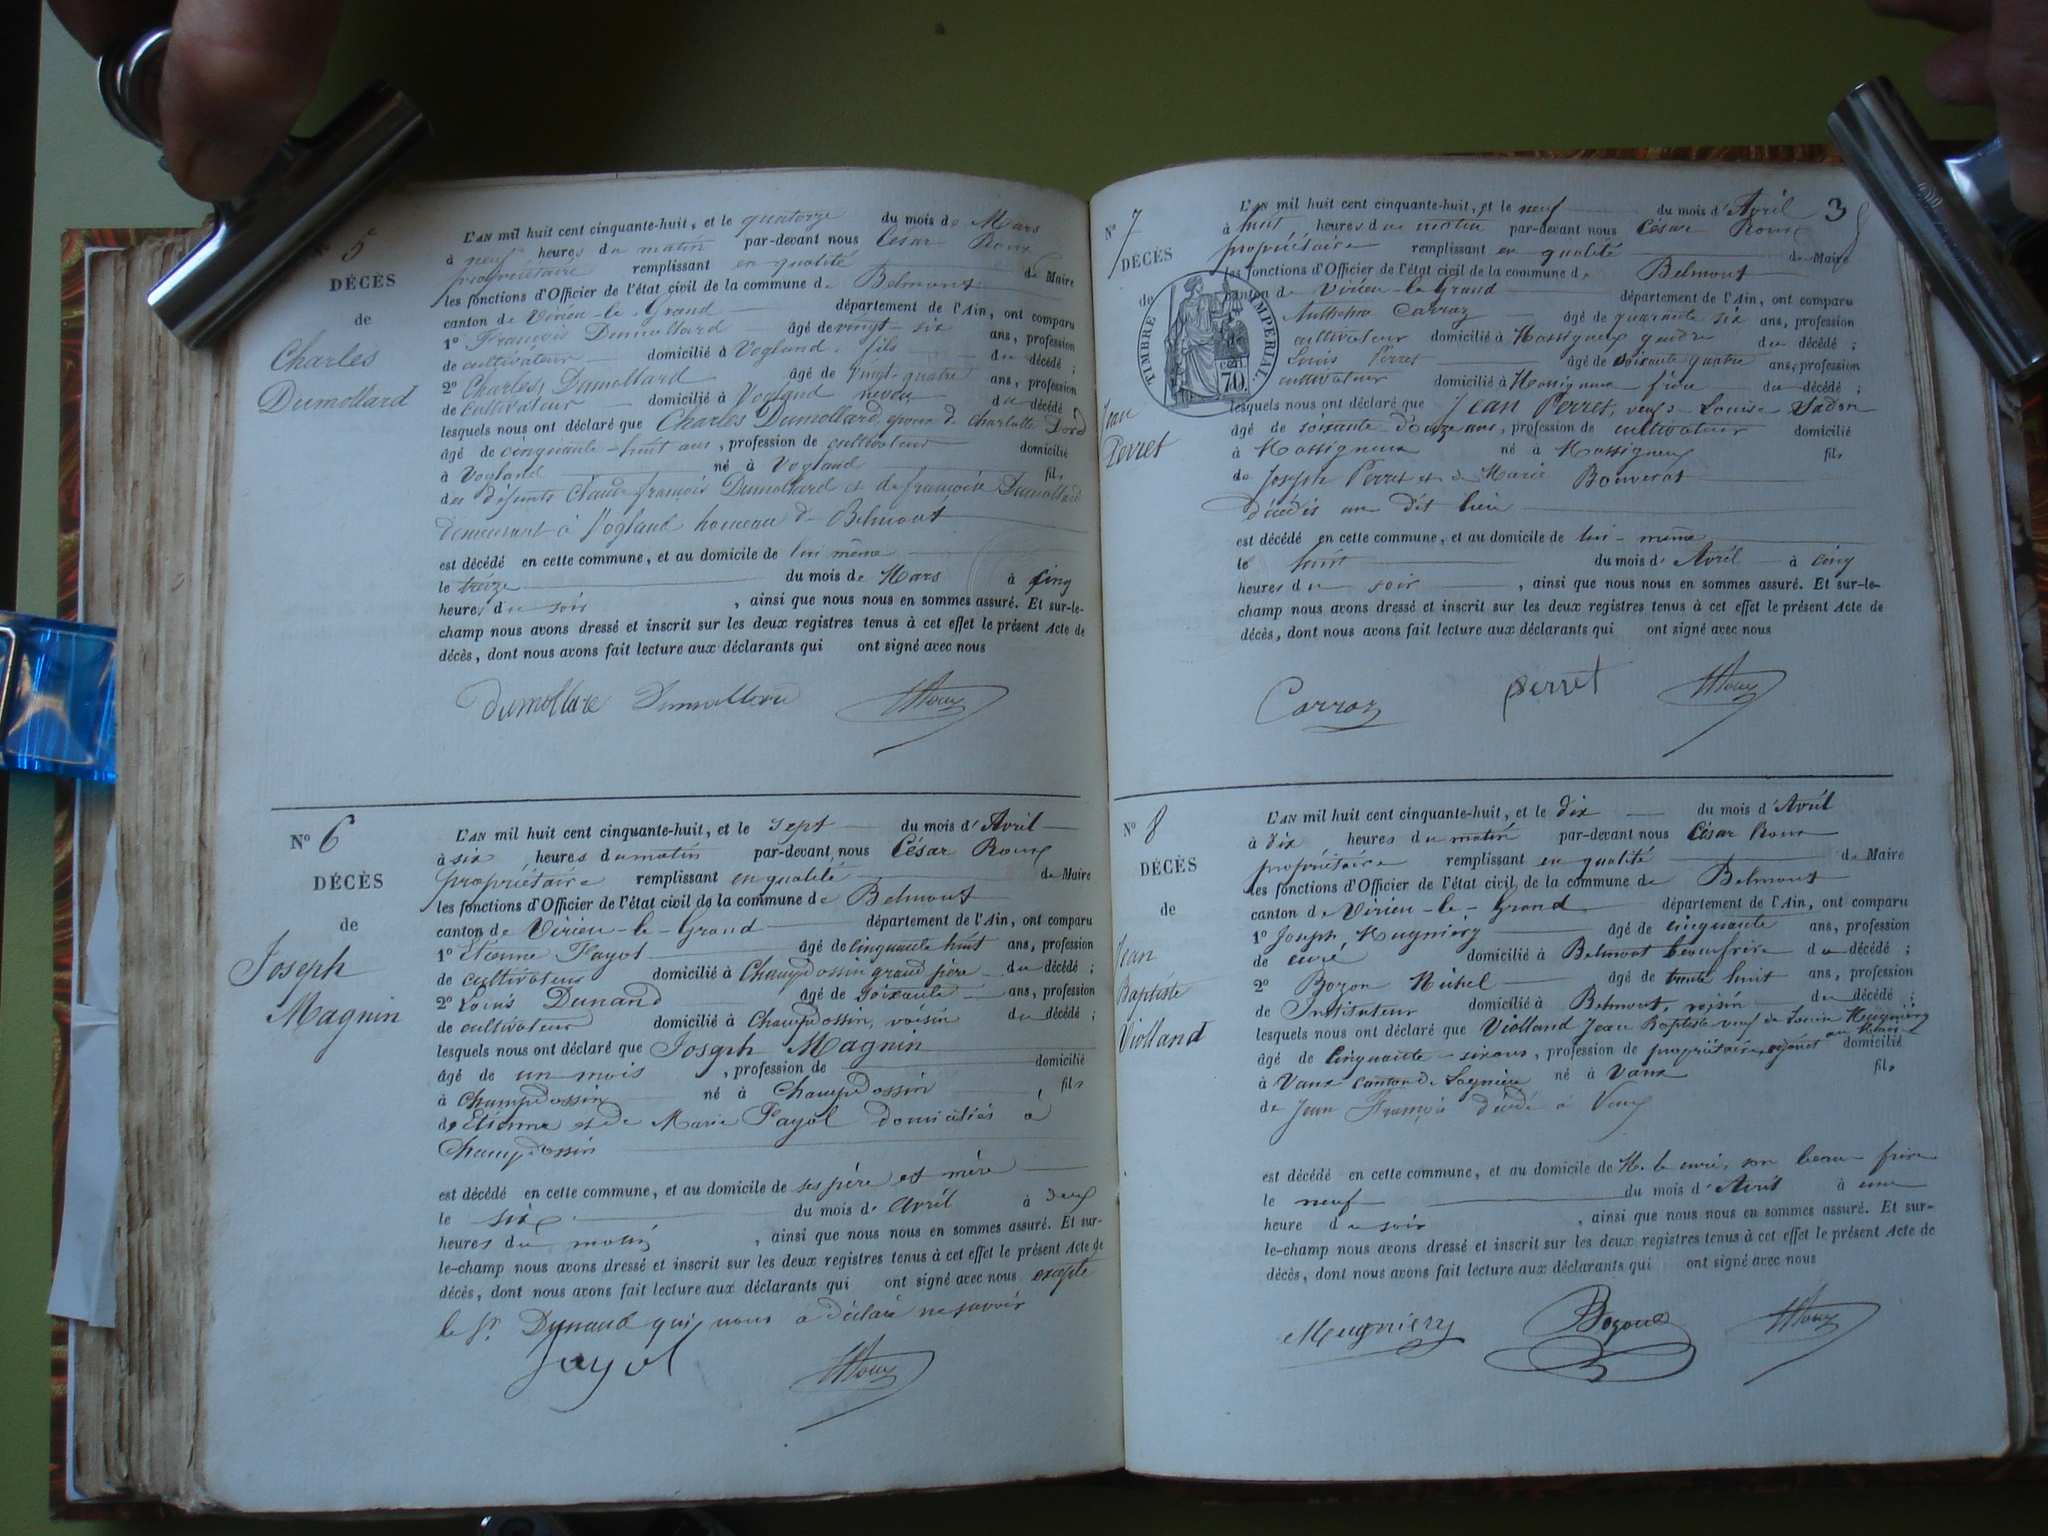 N° 5
DÉCÈS
de
Charles
Dumollard
L'AN mil huit cent cinquante-huit, et le quatorze du mois de Mars
à neuf heures du matin par-devant nous César Roux
propriétaire remplissant en qualité de Maire
les fonctions d'Officier de l'état civil de la commune de Belmont
canton de Virieu-le-Grand département de l'Ain, ont comparu
1° François Dumollard âgé de vingt-six ans, profession
de cultivateur domicilié à Vogland, fils du décédé ;
2° Charles Dumollard âgé de vingt-quatre ans, profession
de cultivateur domicilié à Vogland neveu du décédé ;
lesquels nous ont déclaré que Charles Dumollard, époux de Charlotte
âgé de cinquante-huit ans, profession de cultivateur domicilié
à Vogland né à Vogland fils
des défunts Claude françois Dumollard et de françoise Dumollard
demeurant à Vogland hameau de Belmont
est décédé en cette commune, et au domicile de lui même
le treize du mois de Mars à cinq
heures du soir, ainsi que nous nous en sommes assuré. Et sur-le-
champ nous avons dressé et inscrit sur les deux registres tenus à cet effet le présent Acte de
décès, dont nous avons fait lecture aux déclarants qui ont signé avec nous
Dumollard Dumollard Roux
N° 6
DÉCÈS
de
Joseph
Magnin
L'AN mil huit cent cinquante-huit, et le sept du mois d'Avril
à six heures du matin par-devant nous César Roux
propriétaire remplissant en qualité de Maire
les fonctions d'Officier de l'état civil de la commune de Belmont
canton de Virieu-le-Grand département de l'Ain, ont comparu
1° Etienne Fayol âgé de cinquante huit ans, profession
de cultivateur domicilié à Champdossin grand père du décédé ;
2° Louis Dunand âgé de soixante ans, profession
de cultivateur domicilié à Champdossin, voisin du décédé ;
lesquels nous ont déclaré que Joseph Magnin
âgé de un mois, profession de domicilié
à Champdossin né à Champdossin fils
de Etienne et de Marie Fayol domiciliés à
Champdossin
est décédé en cette commune, et au domicile de ses père et mère
le six du mois d'avril à deux
heures du matin, ainsi que nous nous en sommes assuré. Et sur-
le-champ nous avons dressé et inscrit sur les deux registres tenus à cet effet le présent Acte de
décès, dont nous avons fait lecture aux déclarants qui ont signé avec nous excepté
le Sr Dunand qui nous a déclaré ne savoir
fayol Roux
3
N° 7
DÉCÈS
de
Jean
Perret
TIMBRE IMPERIAL
70
L'AN mil huit cent cinquante-huit, et le neuf du mois d'Avril
à huit heures du matin par-devant nous César Roux
propriétaire remplissant en qualité de Maire
les fonctions d'Officier de l'état civil de la commune de Belmont
canton de Virieu-le-Grand département de l'Ain, ont comparu
Anthelme Carraz âgé de quarante six ans, profession
cultivateur domicilié à Massigneux gendre du décédé ;
Louis Perret âgé de soixante quatre ans, profession
cultivateur domicilié à Massigneux frère du décédé ;
lesquels nous ont déclaré que Jean Perret, veuf Louise
âgé de soixante-douze ans, profession de cultivateur domicilié
à Massigneux né à Massigneux fils
de Joseph Perret et de Marie Bouverat
décédés au dit lieu
est décédé en cette commune, et au domicile de lui-même
le huit du mois d'Avril à cinq
heures du soir, ainsi que nous nous en sommes assuré. Et sur-le-
champ nous avons dressé et inscrit sur les deux registres tenus à cet effet le présent Acte de
décès, dont nous avons fait lecture aux déclarants qui ont signé avec nous
Carraz perret Roux
N° 8
DÉCÈS
de
Jean
Baptiste
Violland
L'AN mil huit cent cinquante-huit, et le dix du mois d'Avril
à dix heures du matin par-devant nous César Roux
propriétaire remplissant en qualité de Maire
les fonctions d'Officier de l'état civil de la commune de Belmont
canton de Virieu-le-Grand département de l'Ain, ont comparu
1° Joseph Mugniery âgé de cinquante ans, profession
de curé domicilié à Belmont beaufrère du décédé ;
2° Bozon Michel âgé de trente huit ans, profession
de Instituteur domicilié à Belmont, voisin du décédé ;
lesquels nous ont déclaré que Violland Jean Baptiste veuf de Louise Mugniery
âgé de cinquante-six ans, profession de propriétaire domicilié
à Vaux canton de Lagnieu né à Vaux fils
de Jean François décédé à Vaux
est décédé en cette commune, et au domicile de M. le curé, son beau-frère
le neuf du mois d'Avril à une
heure du soir, ainsi que nous nous en sommes assuré. Et sur-
le-champ nous avons dressé et inscrit sur les deux registres tenus à cet effet le présent Acte de
décès, dont nous avons fait lecture aux déclarants qui ont signé avec nous
Mugniery Bozon Roux